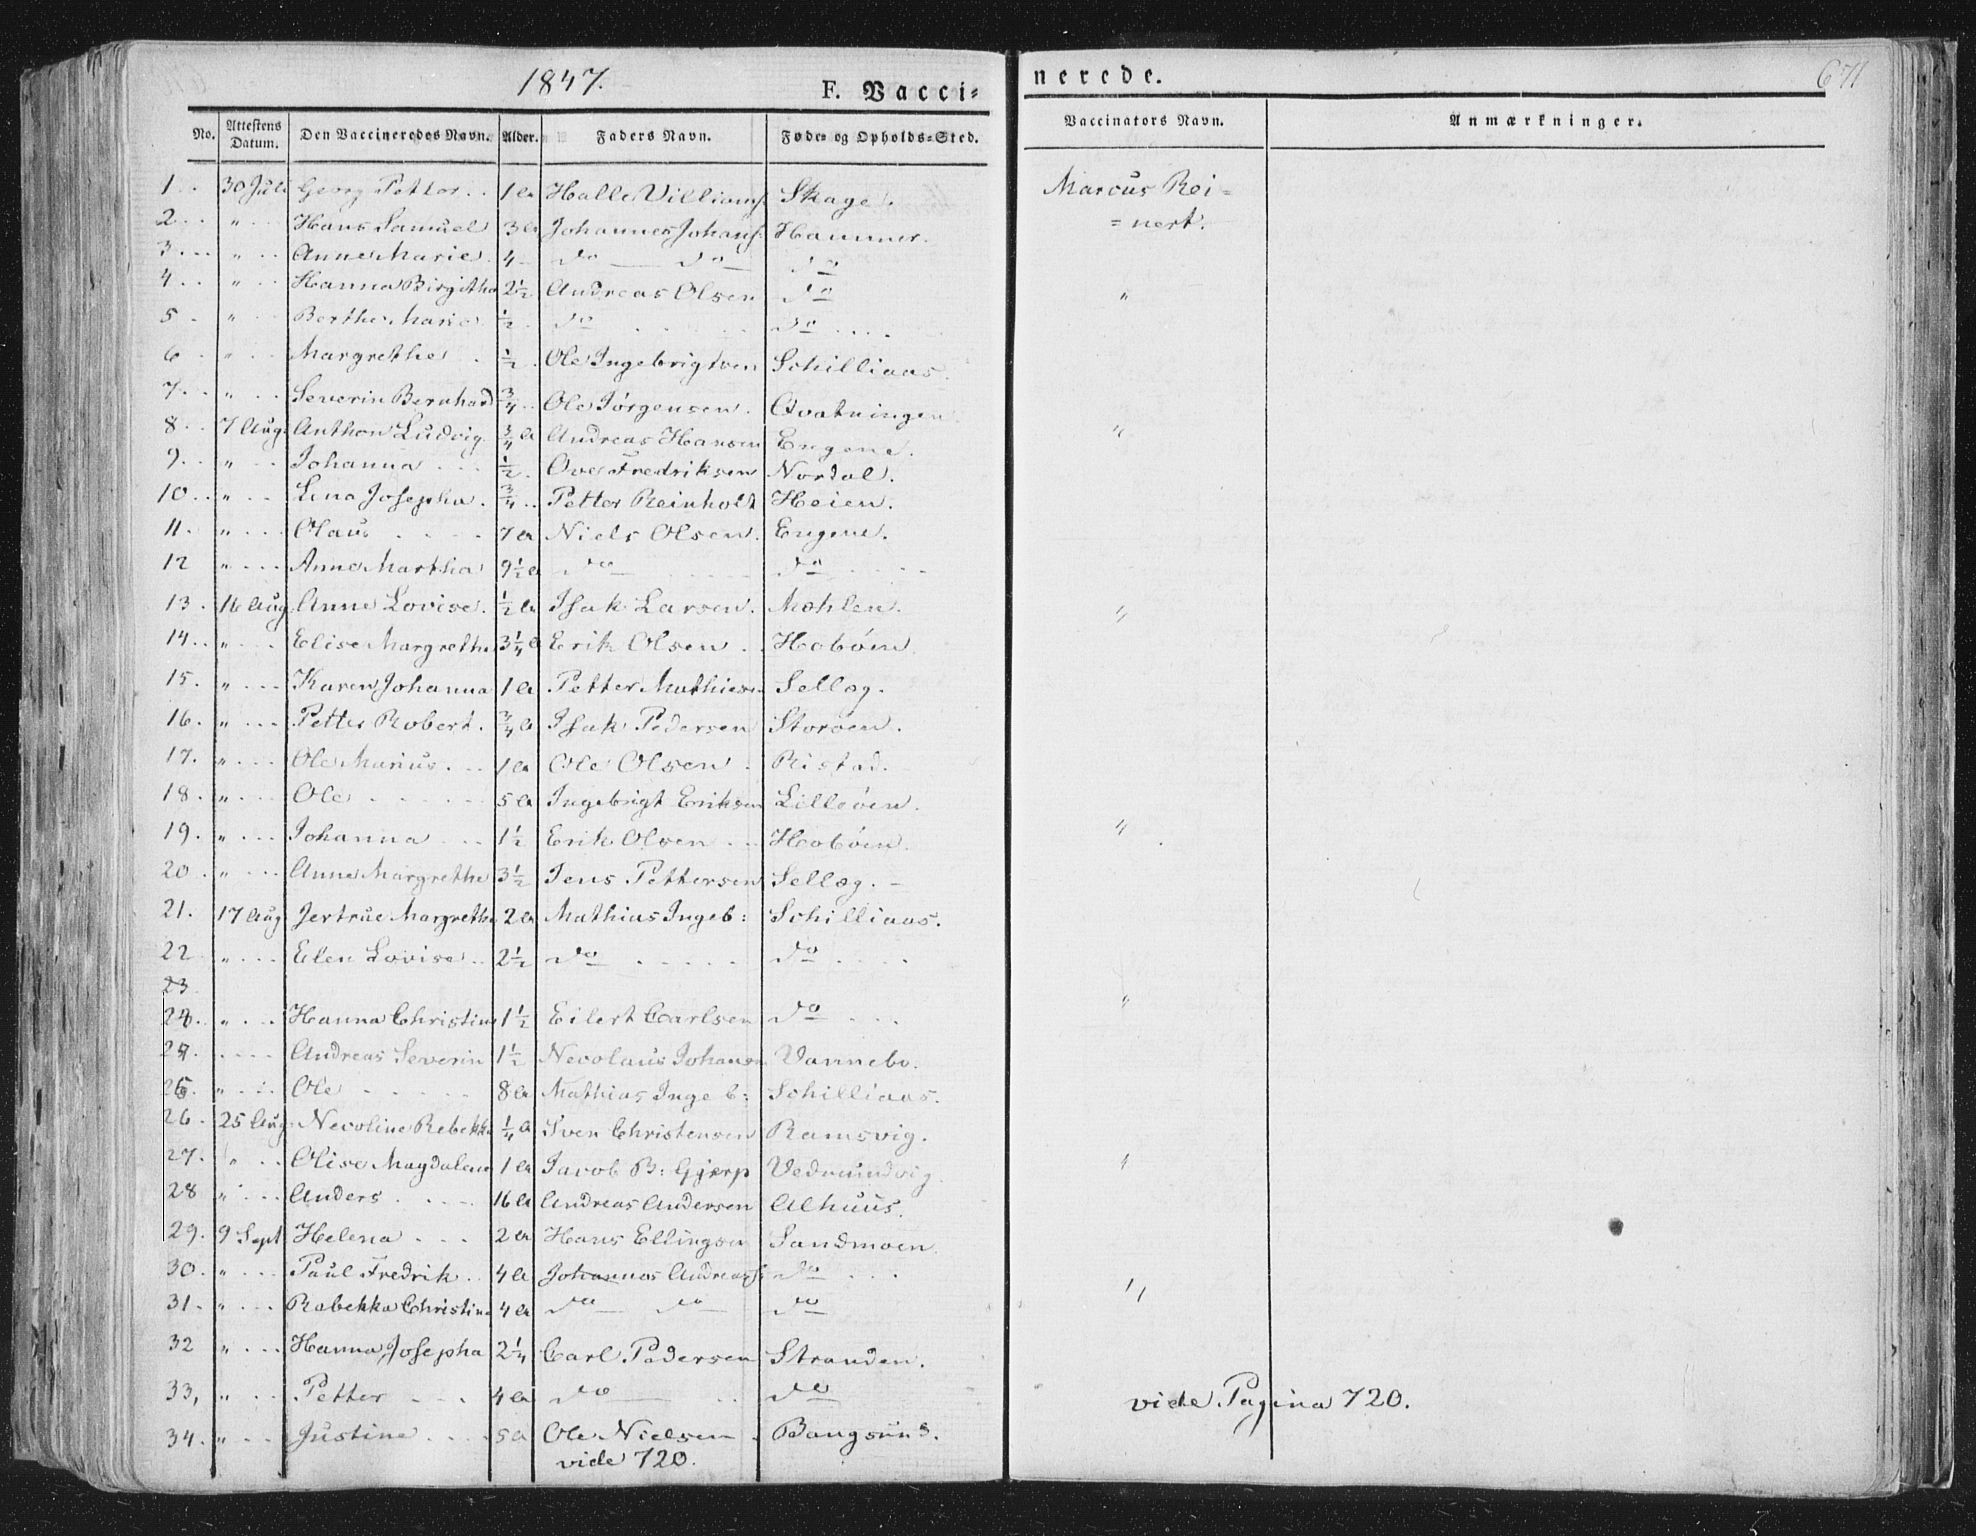 1847.
F. Vacci=
nerede.
671
No. Attestens Datum. Den Vaccineredes Navn. Alder. Faders Navn. Føde= og Opholds=Sted. Vaccinators Navn. Anmærkninger.
1 . . 30 Juli Georg Petter . . 1 a Halle Villiams. Skage. Marcus Rei=
2 . . " . . Hans Samuel 3 a Johannes Johans. Hammer. = nert.
3 . . . " . . Anne Marie 4 do do do
4 . . " . . Hanna Birgitha 2½ Andreas Olsen do "
5 . " . . Berthe Marie ½ do . . . do . . . .
6 . " . . Margrethe . ½ . Ole Ingebrigtsen Schilliaas.
7 . . " . . Severin Bernhard ¾ . . Ole Jørgensen . Qvatningen
8 . . 7 Aug. Anthon Ludvig ¾ a Andreas Hansen Engene. "
9 . . " . . Johanna . . . ½ . Ove Fredriksen Nordal.
10 . . " . . Lena Josepha . ¾ . . Petter Reinholt Heien.
11 . " . . . Olaus . . . . 7 a Niels Olsen . Engene.
12 " . . . Anne Martha 9½ a do . . . . do . . . .
13 . 16 Aug. Anne Lovise . ½ a Isak Larsen . Mohlen. "
14 . . " . . . Elise Margrethe 3¼ a Erik Olsen . . Hobøen.
15 . " . . . Karen Johanna 1 a Petter Mathiesen Sellæg.
16 . " . . . Petter Robert . ¾ a Isak Pedersen Storøen.
17. " . . . Ole Marius . . . 1 a Ole Olsen . Ristad.
18 . " . . . Ole . . . . . . 5 a Ingebrigt Eriksen Lilleøen.
19. " . . . Johanna . . . 1½ Erik Olsen . . Hobøen. "
20 . " . . . Anne Margrethe 3½ Jens Pettersen Sellæg. –
21. 17 Aug Jertrue Margrethe 2 a Mathias Ingeb: Schilliaas.
22 " . . . Elen Lovise . . 2½ do . . . . . do . . . .
23
24. " . . . Hanna Christine 1½ Eilert Carlsen do . . . "
24. . . . . Andreas Severin 1½ Nevolaus Johansen Vannebo.
25 " . . . Ole . . . . . 8 a Mathias Ingeb: Schilliaas.
26 . 25 Aug. Nevoline Rebekka ¼ a Sven Christensen Ramsvig.
27. " . . Olise Magdalene 1 a Jacob B: Gjerp Vedmundvig. "
28 " . . . Anders . . . . 16 a Andreas Andersen Alhuus.
29. 9 Sept Helena . . . 2 a Hans Ellingsen Sandmoen.
30 . " . . . Paul Fredrik . . 4 a Johannes Andreas. do . . .
31 . " . . . Rebekka Christine 4 a do do do "
32 " . . . Hanna Josepha 2¼ Carl Pedersen Stranden.
33, " . . Petter . . . 4 a do . . do vide Pagina 720.
34 . " . . Justine . . . . 5 a Ole Nielsen . Bangsund.
vide 720.